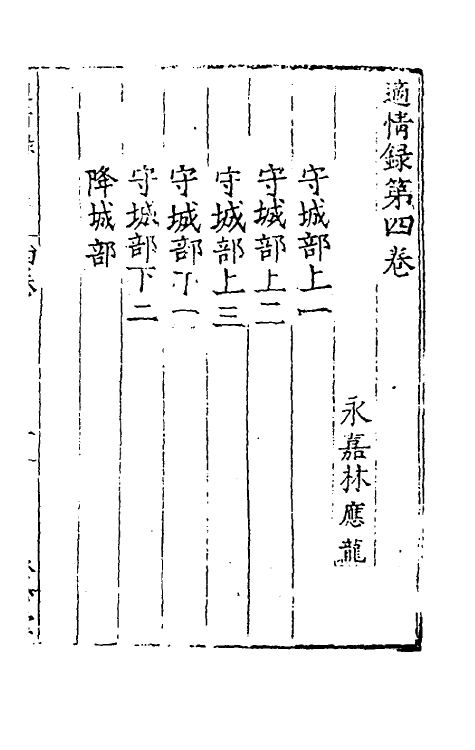 適情録第四卷
永嘉林應龍
守城部上一
守城部上二
守城部上三
守城部下一
守城部下二
降城部